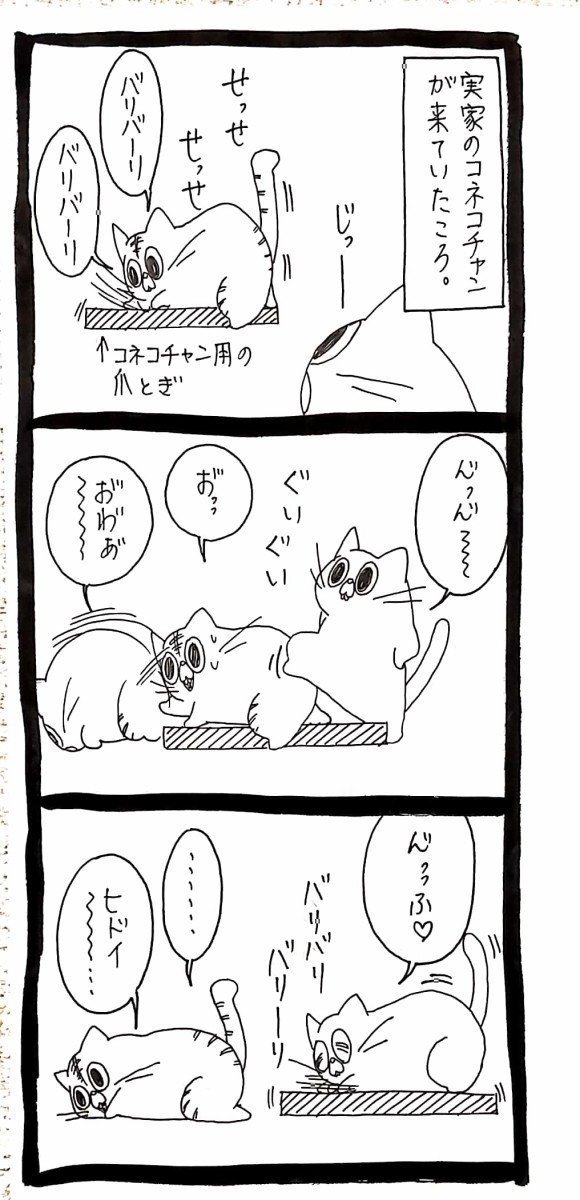 実家のコネコチャン
が来ていたころ。
じっー
せっせ
せっせ
バリバーリ
バリバーリ
↑コネコチャン用の
爪とぎ
ん゛っん゛〜〜
ぐいぐい
お゛っっ
お゛わ゛あ゛
〜〜〜〜
ん゛っっふ♡
バリバリ
バリーリ
・・・・・・
ヒドイ
〜〜〜…